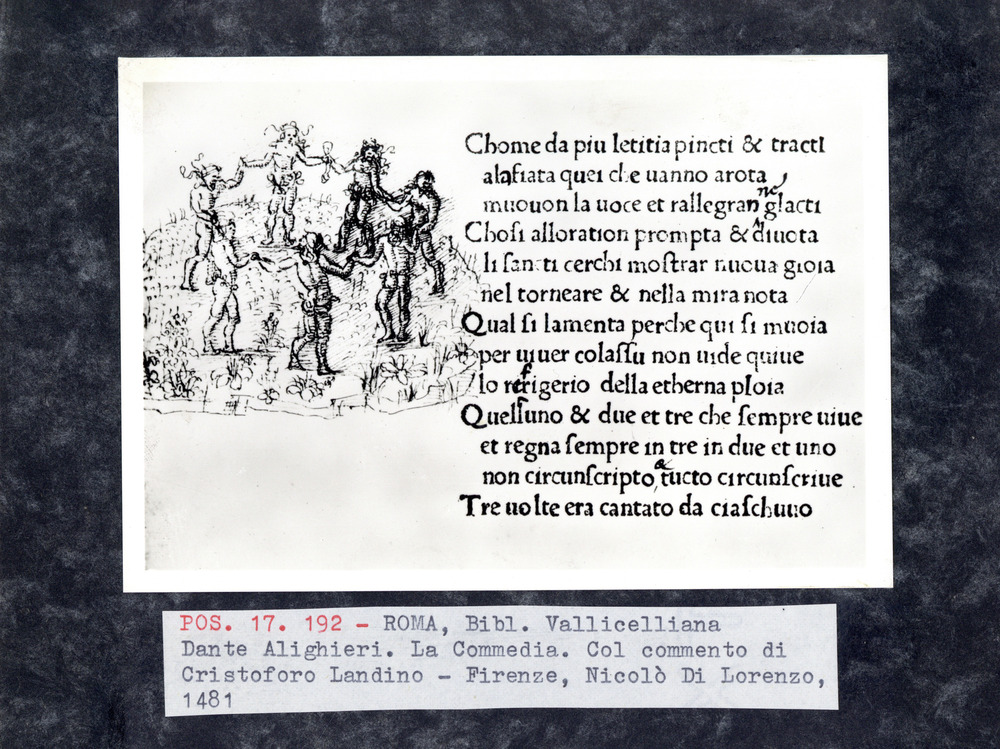 Chome da piu letitia pincti & tracti
alafiata quei che uanno arota
muouon la uoce et rallegran gliacti
ne
Chosi alloration prompta & diuota
li sancti cerchi mostrar nuoua gioia
nel torneare & nella mira nota
Qual si lamenta perche qui si muoia
per uiuer colassu non uide quiue
lo refrigerio della etherna ploia
Quelluno & due et tre che sempre uiue
et regna sempre in tre in due et uno
non circunscripto & tucto circunscriue
Tre uolte era cantato da ciaschuno
POS. 17. 192 - ROMA, Bibl. Vallicelliana
Dante Alighieri. La Commedia. Col commento di
Cristoforo Landino - Firenze, Nicolò Di Lorenzo,
1481